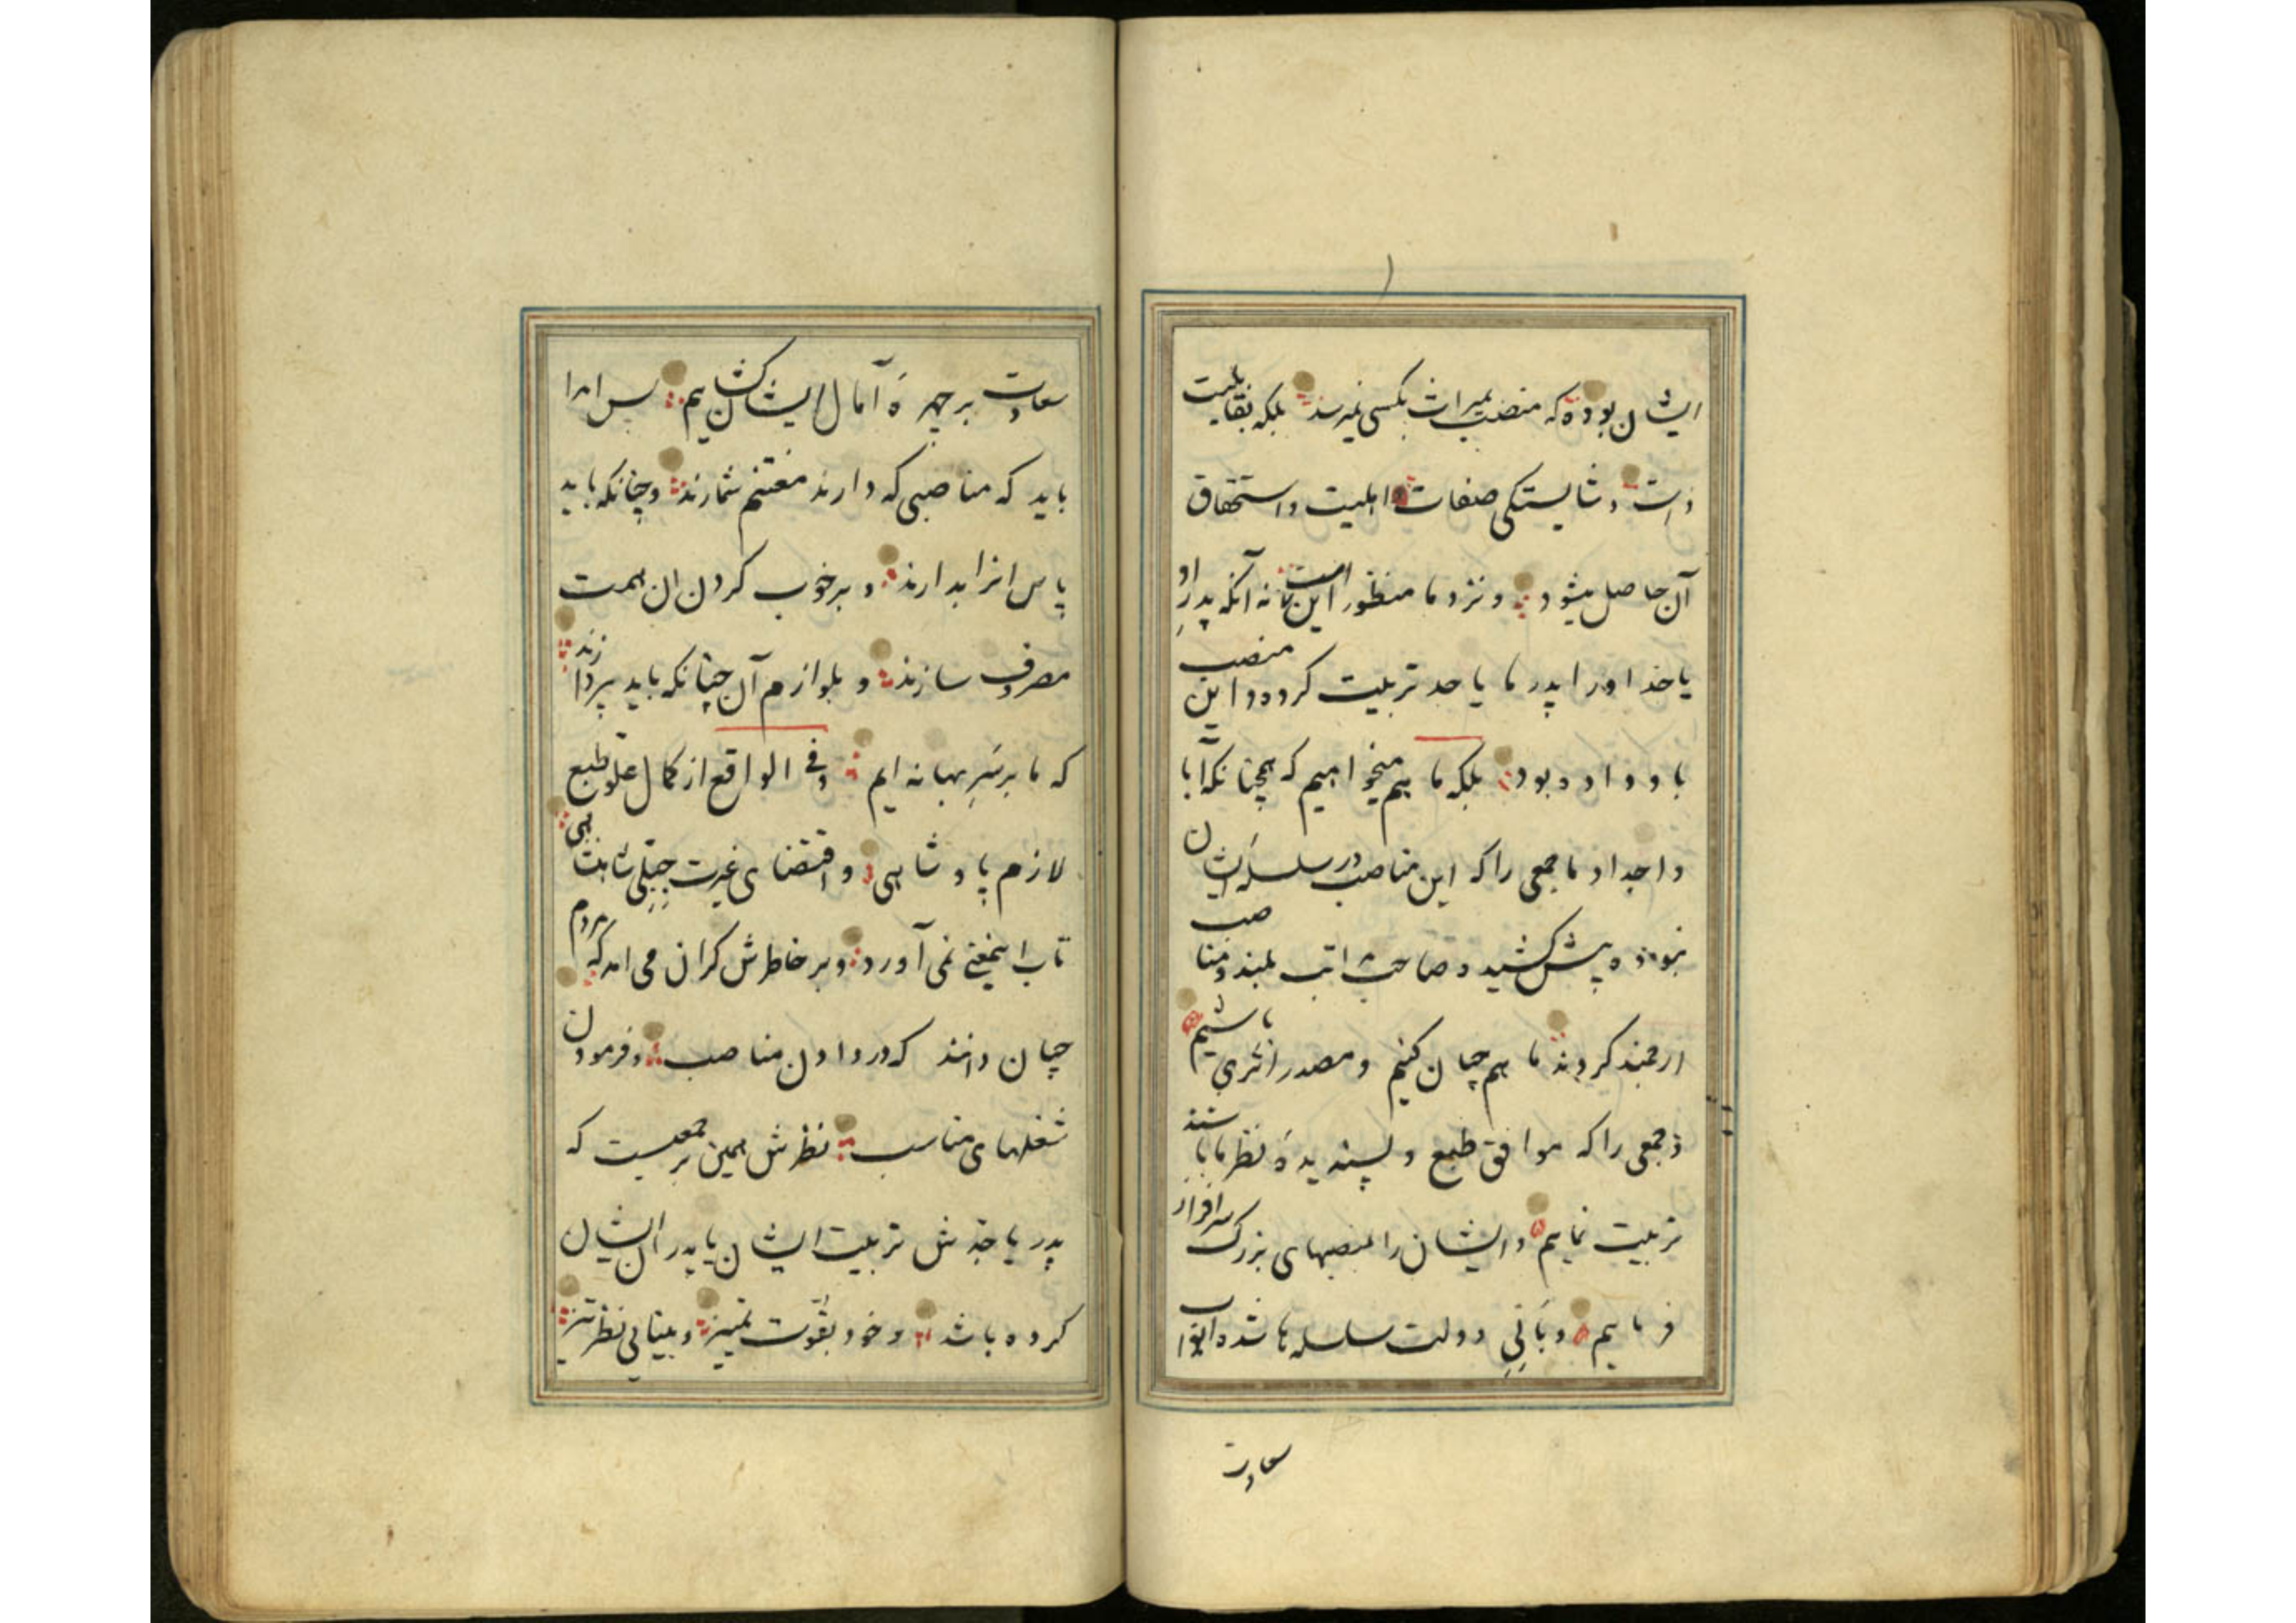 ایشان بوده که منصب بمیراث بکسی نمیرسد بلکه بقابلیت
ذات و شایستگی صفات و اهلیت و استحقاق
آن حاصل میشود و نزد ما منظور این است نه آنکه پدر او
یا جد او را پدر ما یا جد تربیت کرده و این منصب
باو داده بود بلکه ما هم میخواهیم که همچنانکه آبا
و اجداد ما جمعی را که این مناصب در سلسله ایشان
نبوده پیش کشیده صاحب مراتب بلند و مناصب
ارجمند کردند ما هم چنان کنیم و مصدر اثری باشیم
و جمعی را که موافق طبع و پسندیدهٔ نظر ما باشند
تربیت نماییم و ایشان را بمنصبهای بزرگ سرافراز
فرماییم و بانی دولت سلسله ما شده ابواب
سعادت
سعادت بر چهرهٔ آمال ایشان گشاییم پس امرا
باید که مناصبی که دارند مغتنم شمارند و چنانکه باید
پاس انرا بدارند و بر خوب کردن ان همت
مصروف سازند و بلوازم آن چنانکه باید پردازند
که ما بر سر بهانه ایم و فی الواقع از کمال علو طبع
لازم پادشاهی و اقتضای غیرت جبلی شاهنشاهی
تاب اینمعنی نمی آورد و بر خاطرش گران می امد که مردم
چنان دانند که در دادن مناصب و فرمودن
شغلهای مناسب نظرش همین بر جمعیست که
پدر یا جدش تربیت ایشان یا پدر ایشان
کرده باشد و خود بقوت تمییز و بینایی نظر تیز